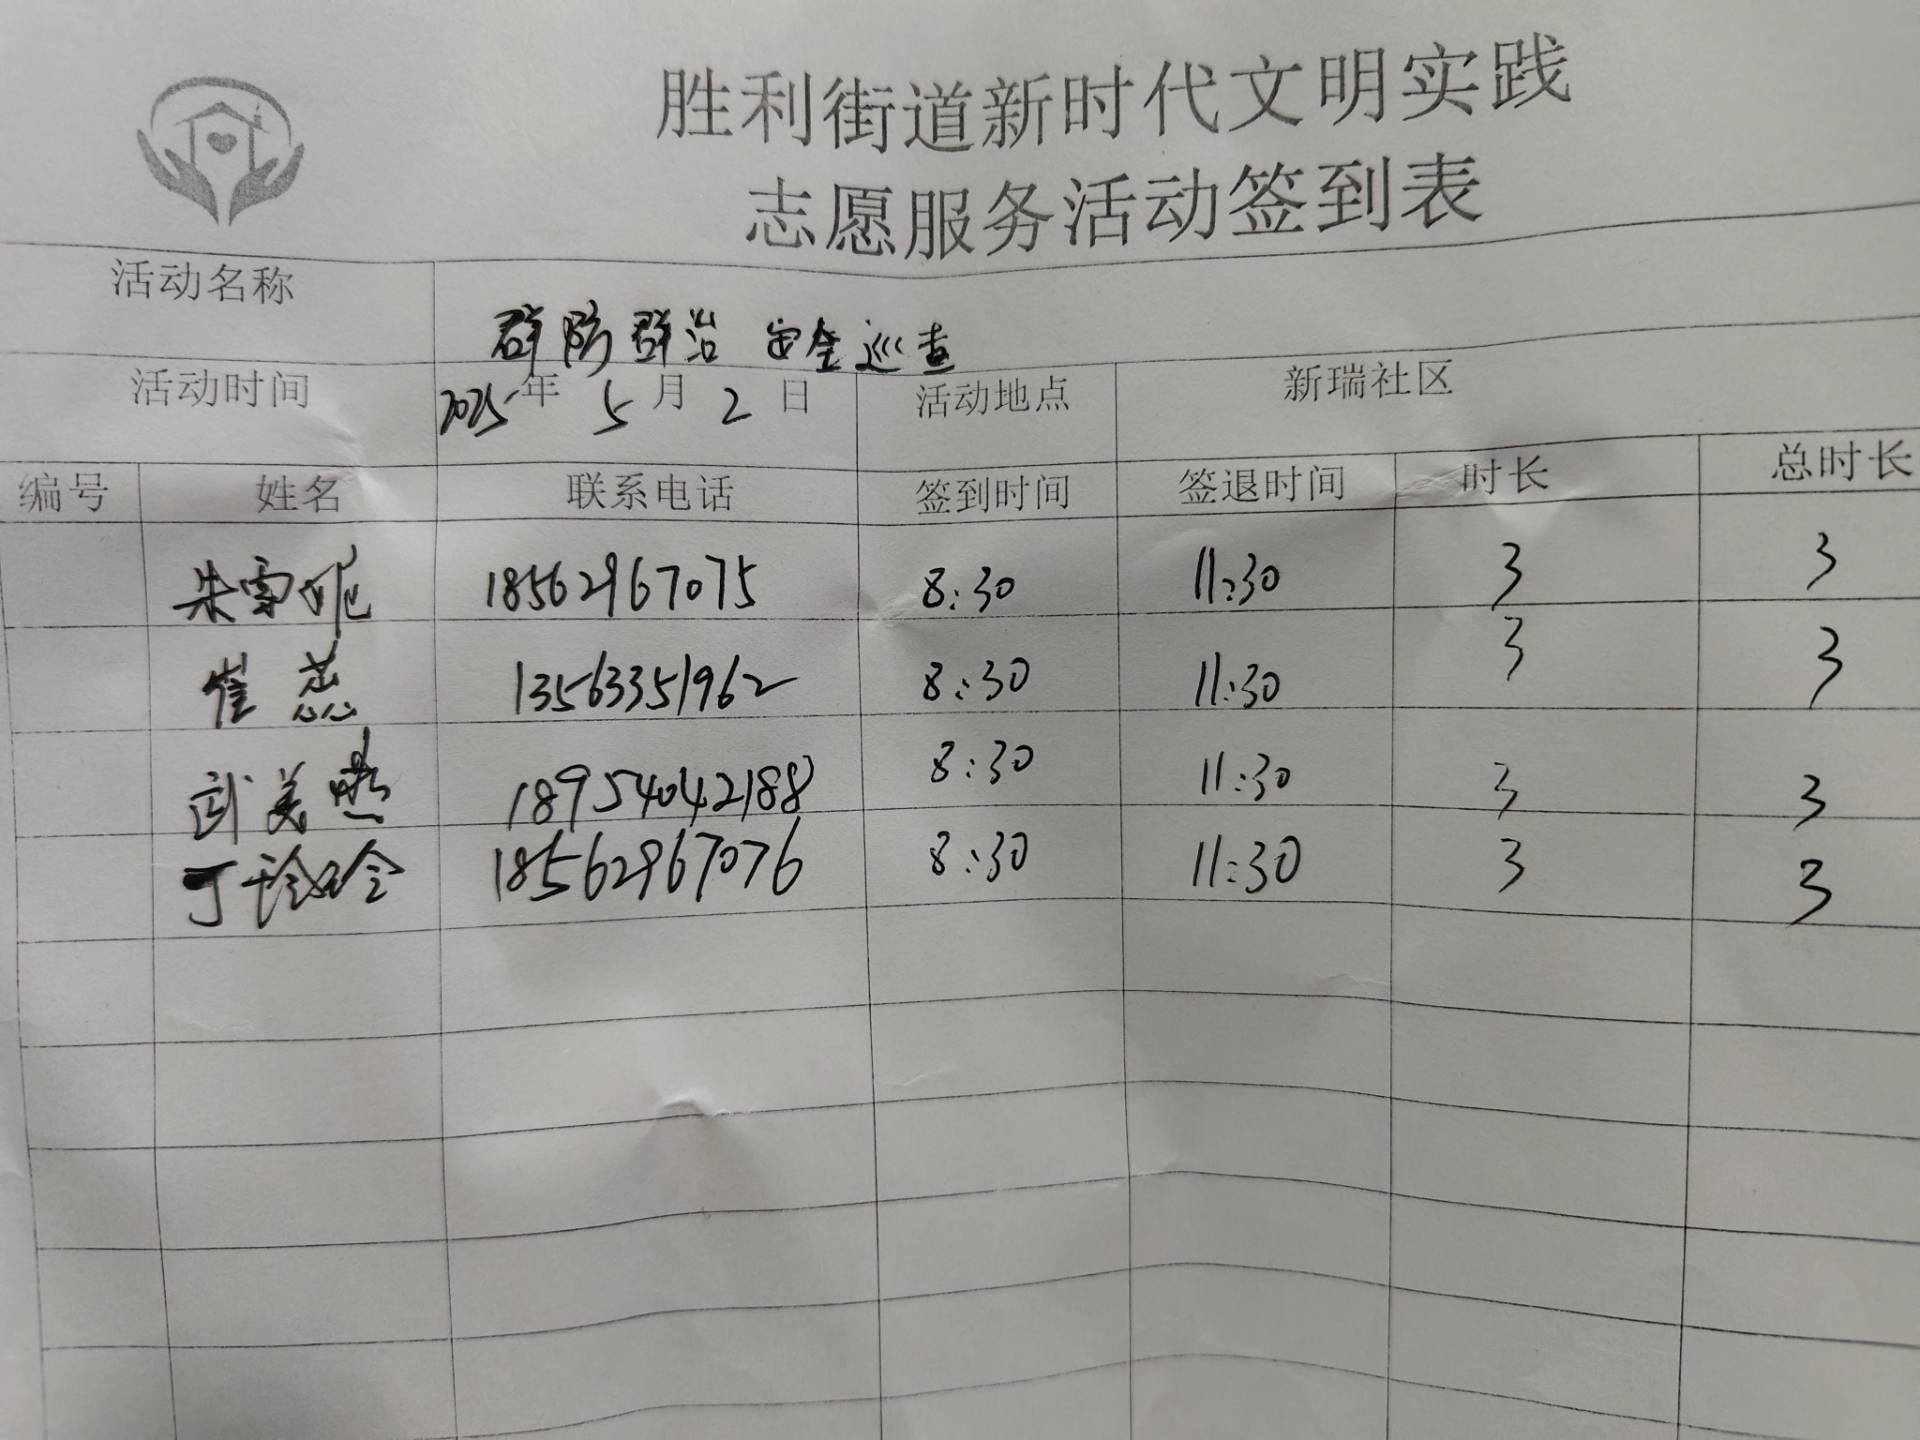 胜利街道新时代文明实践
志愿服务活动签到表
活动名称 群防群治 安全巡查
活动时间 2025年 5月 2日 活动地点 新瑞社区
编号 姓名 联系电话 签到时间 签退时间 时长 总时长
朱雪妮 18562967075 8:30 11:30 3 3
崔蕊 13563351962 8:30 11:30 3 3
武美 18954042188 8:30 11:30 3 3
丁玲玲 18562967076 8:30 11:30 3 3